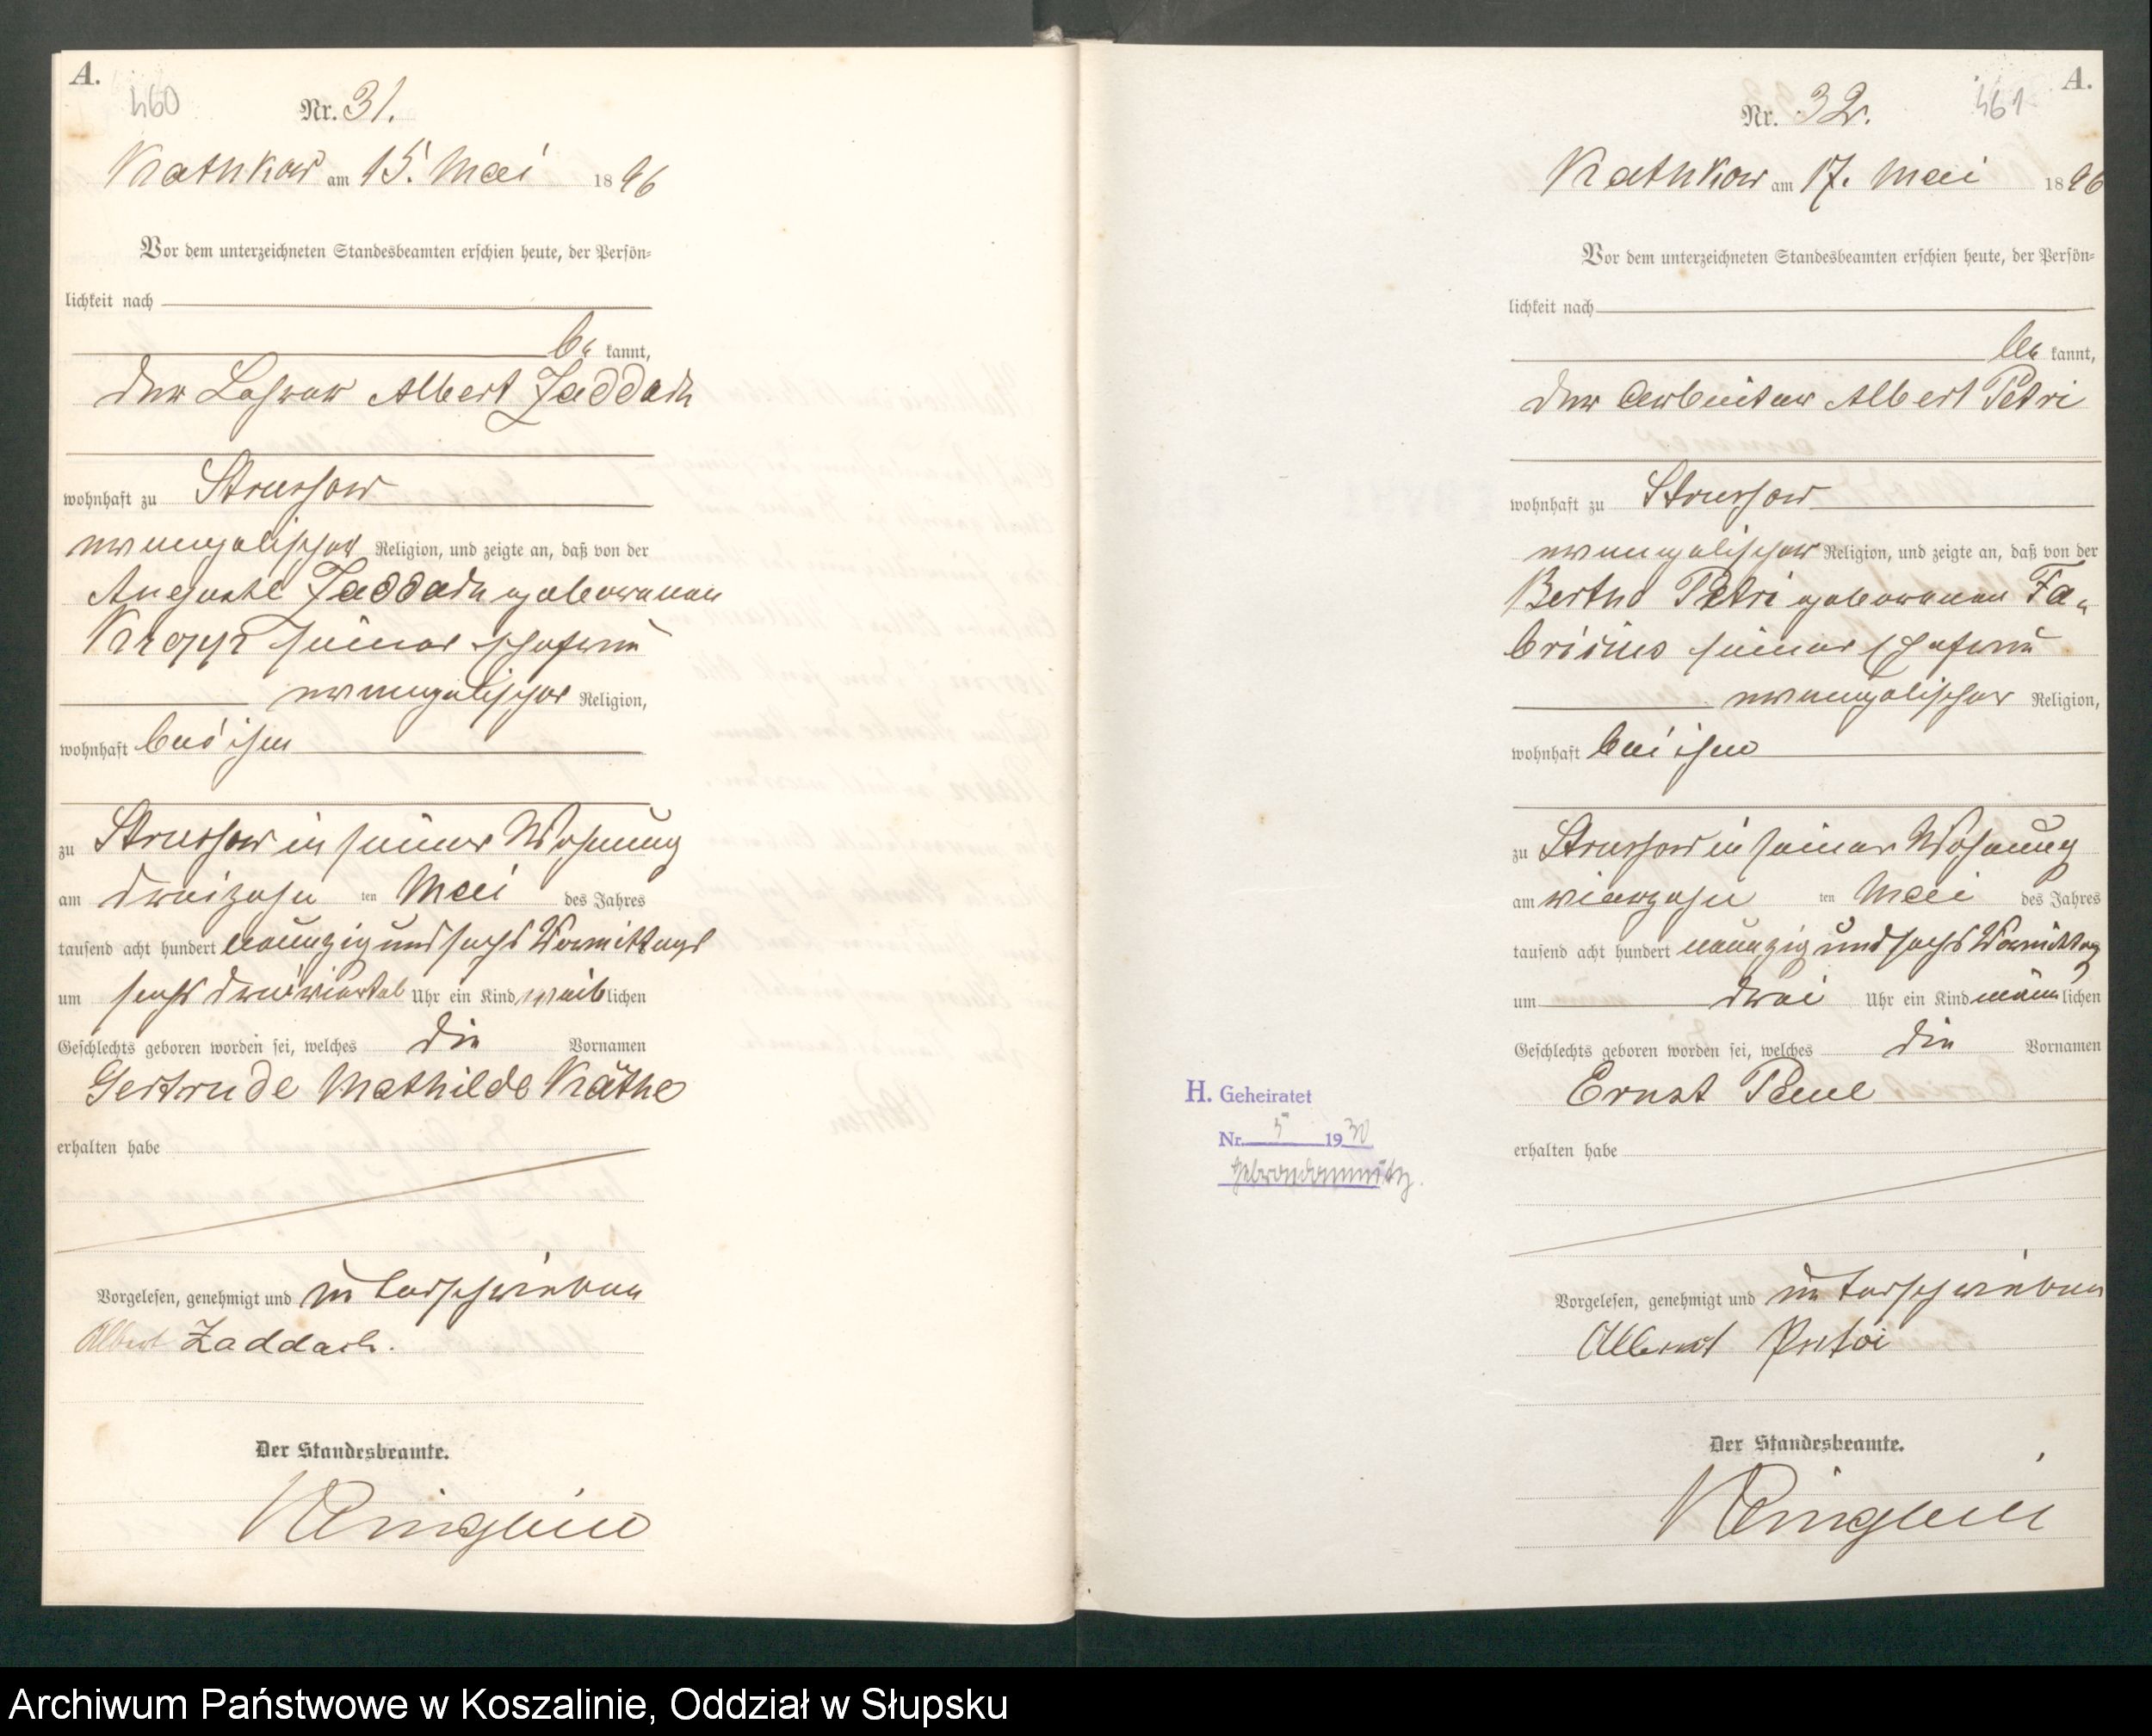 A.
460
Nr. 31.
Kathkow am 15. Mai 1896
Vor dem unterzeichneten Standesbeamten erschien heute, der Persön-
lichkeit nach
be kannt,
der Lehrer Albert Zaddach
wohnhaft zu Strussow
evangelischer Religion, und zeigte an, daß von der
Auguste Zaddach geborenen
seiner Ehefrau
evangelischer Religion,
wohnhaft bei ihm
zu Strussow in seiner Wohnung
am dreizehn ten Mai des Jahres
tausend acht hundert neunzig und sechs Vormittags
um sechs dreiviertel Uhr ein Kind weiblichen
Geschlechts geboren worden sei, welches die Vornamen
Gertrude Mathilde Käthe
erhalten habe
Vorgelesen, genehmigt und unterschrieben
Albert Zaddach.
Der Standesbeamte.
A.
461
Nr. 32.
Kathkow am 17. Mai 1896
Vor dem unterzeichneten Standesbeamten erschien heute, der Persön-
lichkeit nach
be kannt,
der Arbeiter Albert Petri
wohnhaft zu Strussow
evangelischer Religion, und zeigte an, daß von der
Bertha Petri geborenen Fa-
bricius seiner Ehefrau
evangelischer Religion,
wohnhaft bei ihm
zu Strussow in seiner Wohnung
am vierzehn ten Mai des Jahres
tausend acht hundert neunzig und sechs Vormittag
um drei Uhr ein Kind männlichen
Geschlechts geboren worden sei, welches die Vornamen
Ernst Paul
erhalten habe
H. Geheiratet
Nr. 5 1930
Vorgelesen, genehmigt und unterschrieben
Albert Petri
Der Standesbeamte.
Archiwum Państwowe w Koszalinie, Oddział w Słupsku